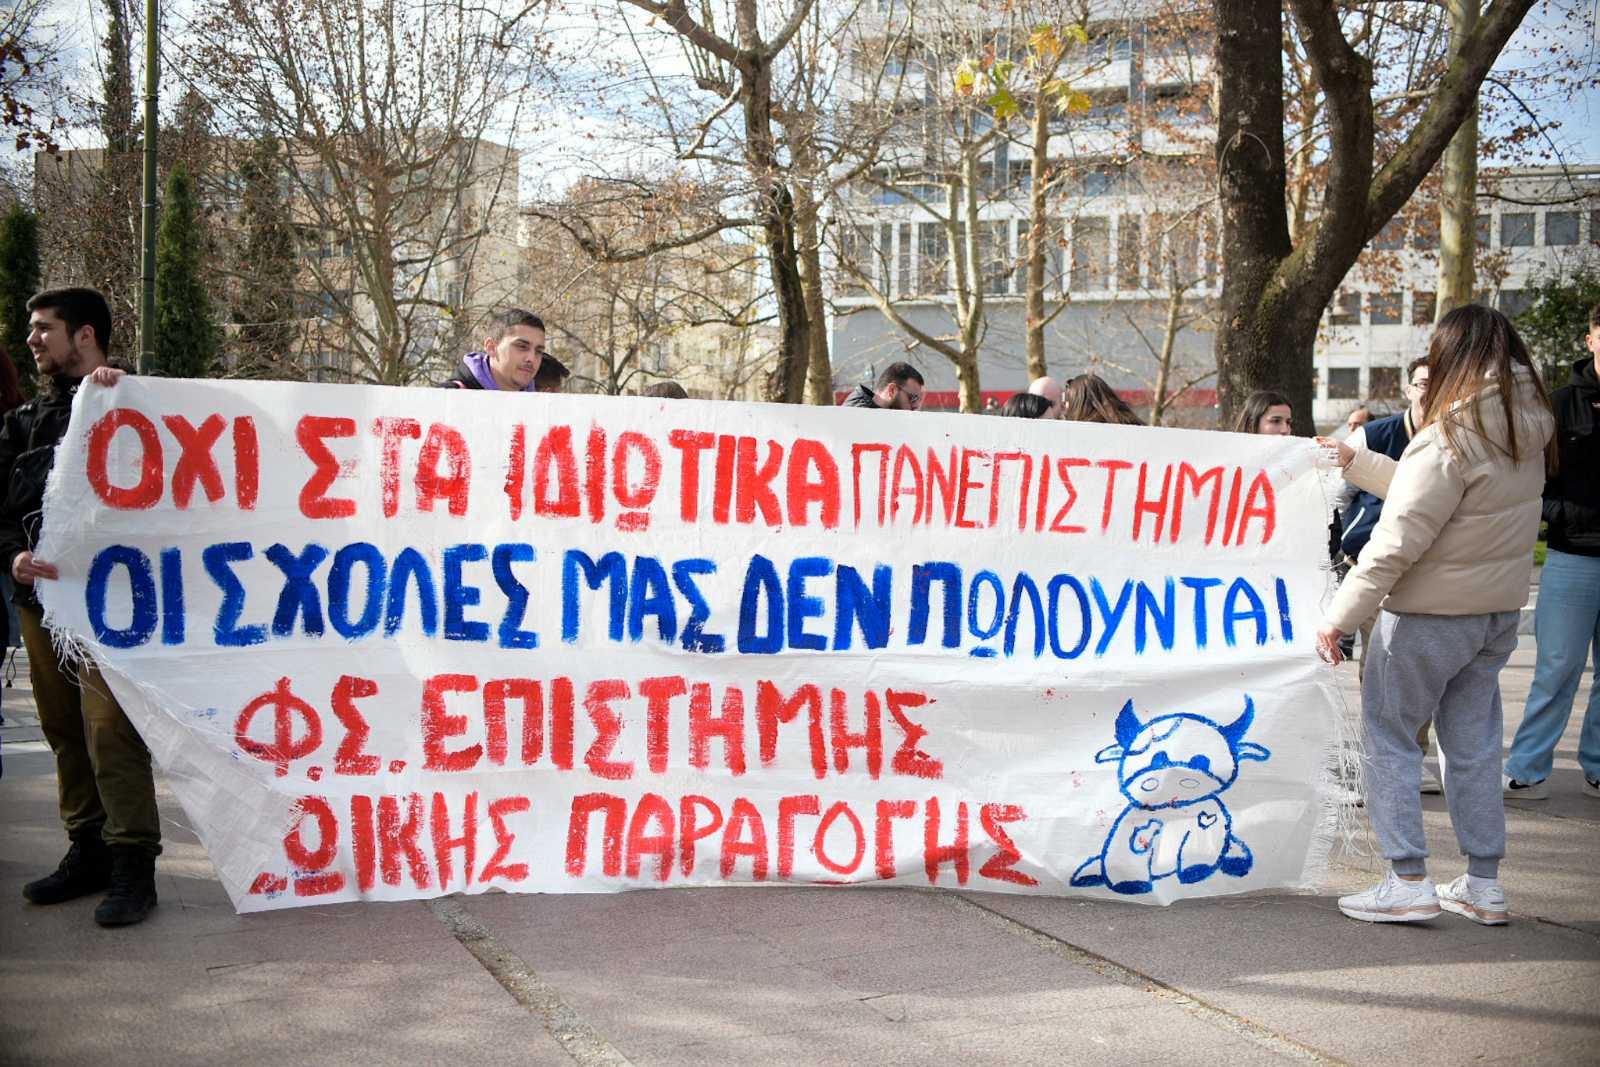 ΟΧΙ ΣΤΑ ΙΔΙΩΤΙΚΑ ΠΑΝΕΠΙΣΤΗΜΙΑ
ΟΙ ΣΧΟΛΕΣ ΜΑΣ ΔΕΝ ΠΩΛΟΥΝΤΑΙ
Φ.Σ. ΕΠΙΣΤΗΜΗΣ
ΖΩΙΚΗΣ ΠΑΡΑΓΩΓΗΣ